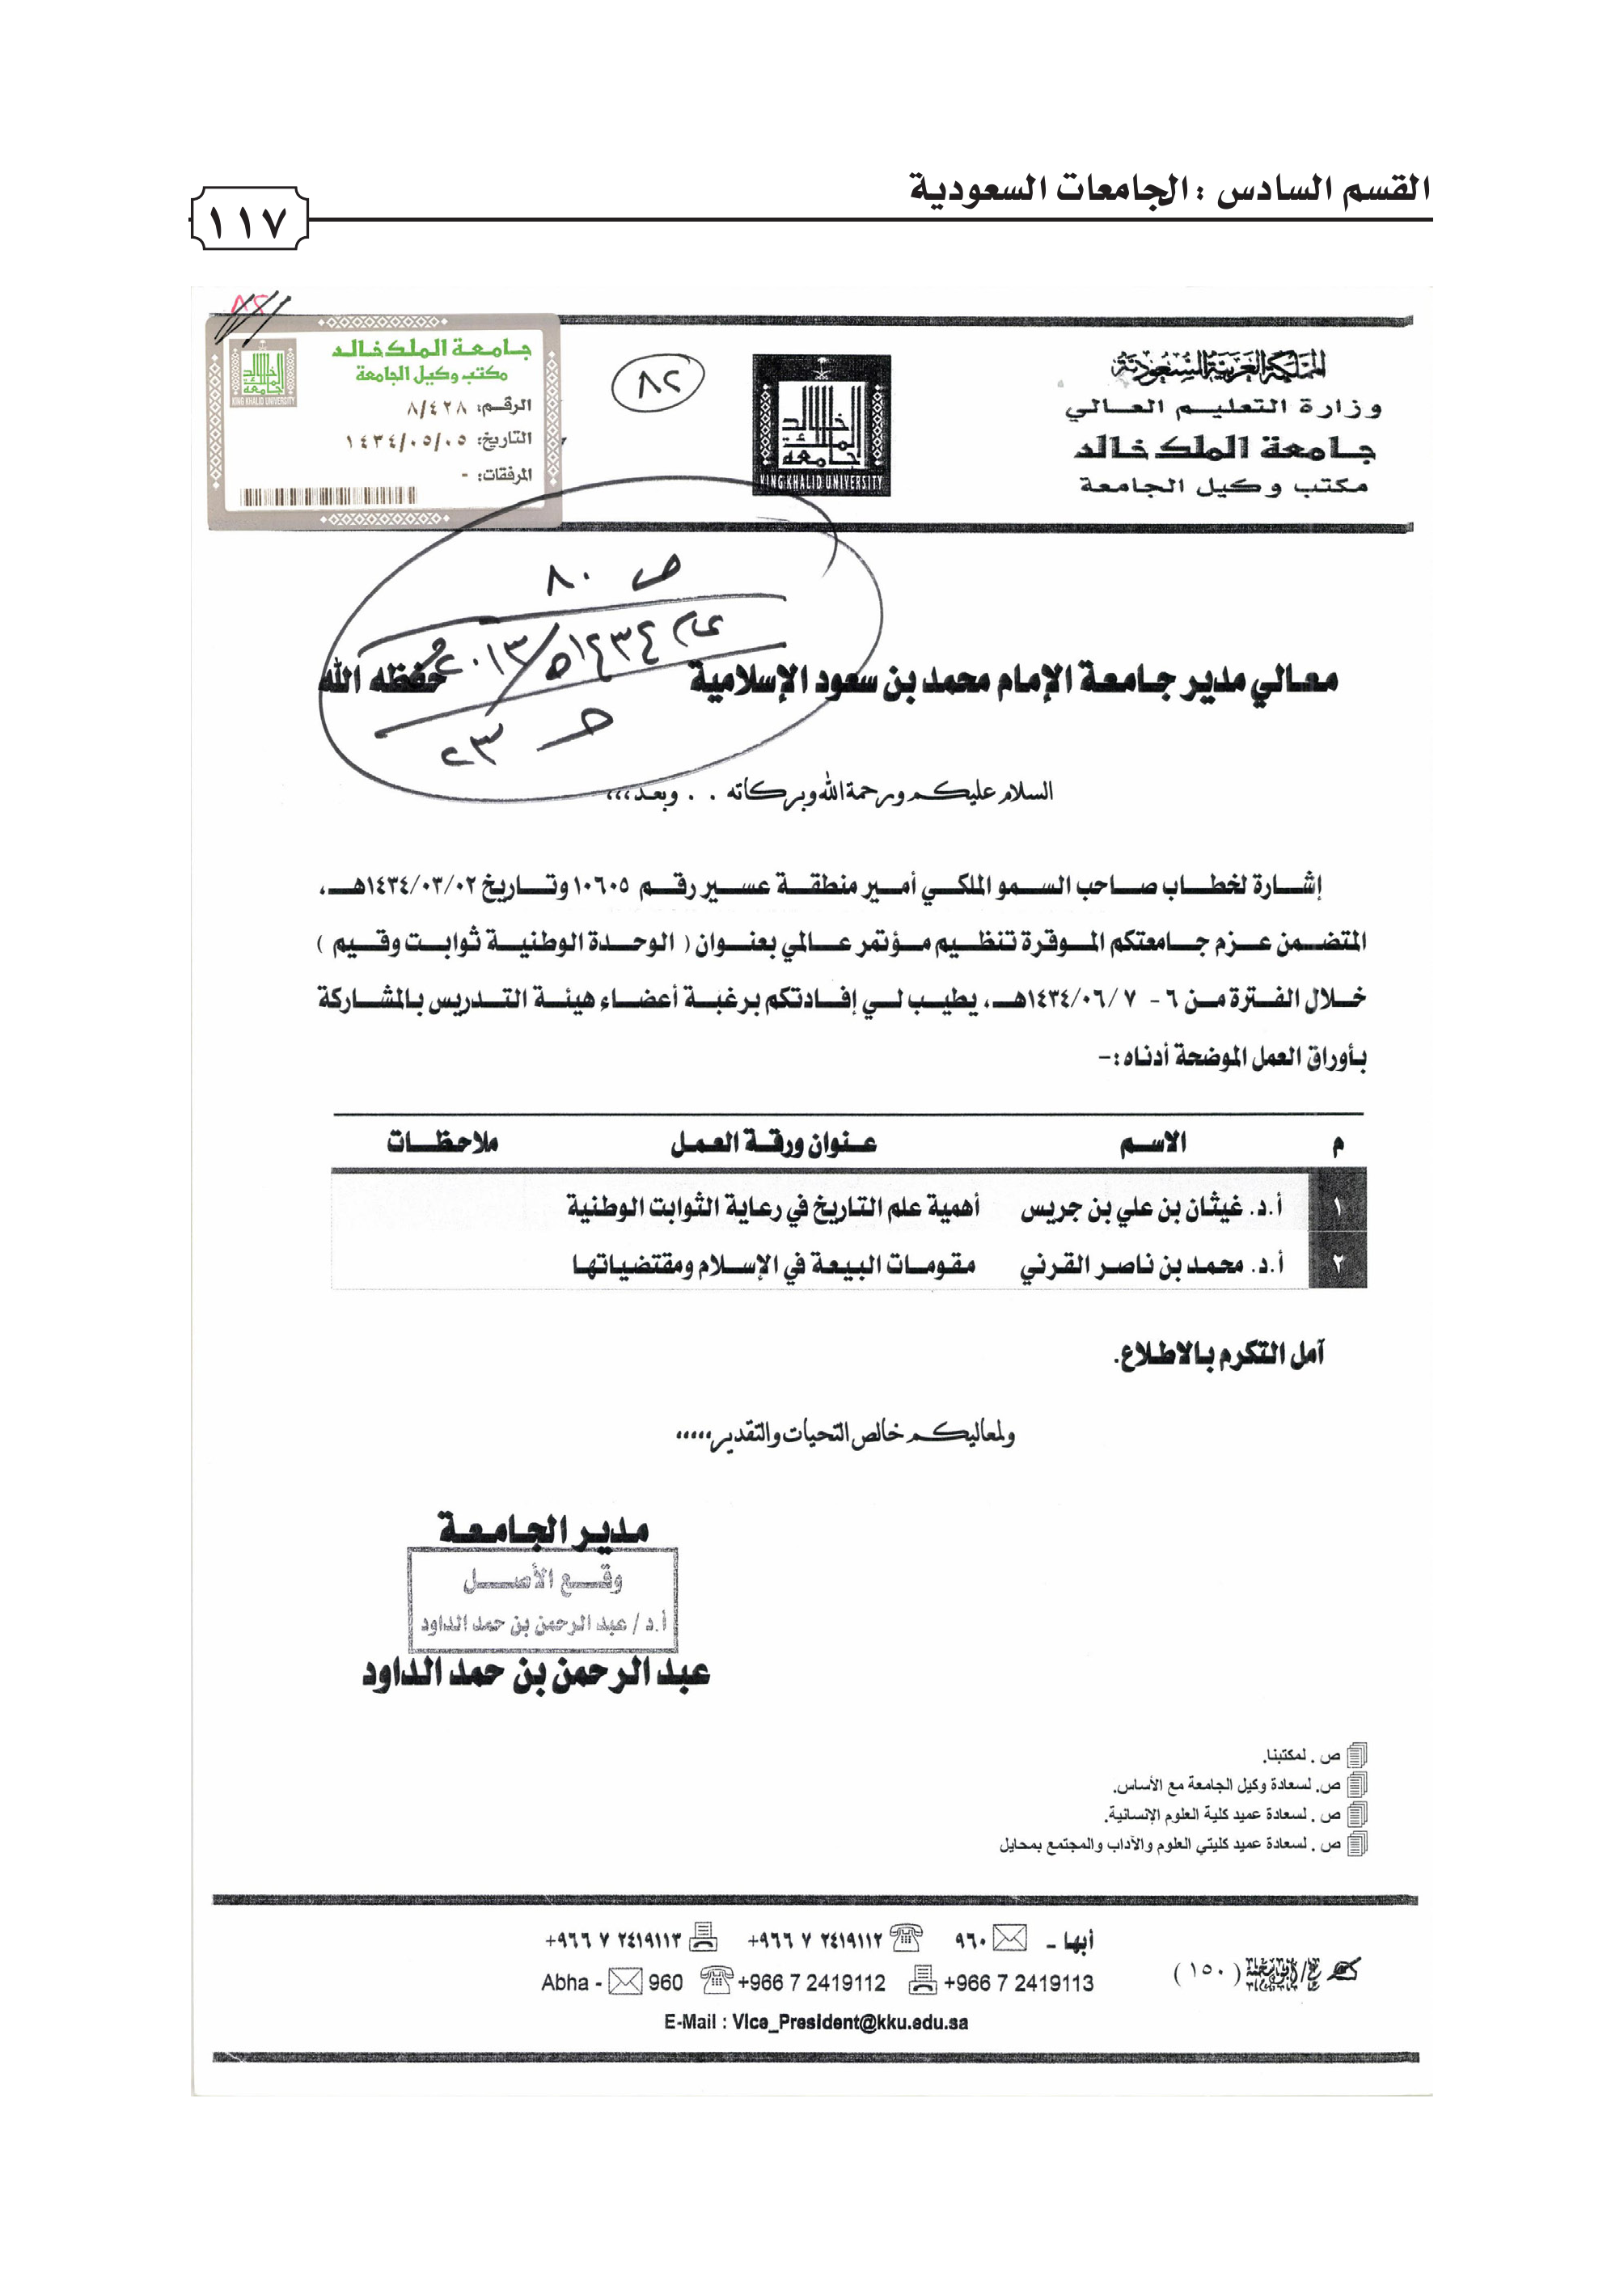 القسم السادس : الجامعات السعودية
١١٧
المملكة العربية السعودية
وزارة التعليم العالي
جامعة الملك خالد
مكتب وكيل الجامعة
KING KHALID UNIVERSITY
٨٢
جامعة الملك خالد
مكتب وكيل الجامعة
الرقم: ٨/٤٢٨
التاريخ: ١٤٣٤/٠٥/٠٥
المرفقات: -
KING KHALID UNIVERSITY
٨٢
ص ٨٠
عام ١٤٣٤هـ/٢٠١٣م
حـ ٢٣
معالي مدير جامعة الإمام محمد بن سعود الإسلامية حفظه الله
السلام عليكم ورحمة الله وبركاته . . وبعد،،،
إشارة لخطاب صاحب السمو الملكي أمير منطقة عسير رقم ١٠٦٠٥ وتاريخ ١٤٣٤/٠٣/٠٢هـ،
المتضمن عزم جامعتكم الموقرة تنظيم مؤتمر عالمي بعنوان ( الوحدة الوطنية ثوابت وقيم )
خلال الفترة من ٦ - ١٤٣٤/٠٦/٧هـ، يطيب لي إفادتكم برغبة أعضاء هيئة التدريس بالمشاركة
بأوراق العمل الموضحة أدناه:-
م الاسم عنوان ورقة العمل ملاحظات
١ أ.د. غيثان بن علي بن جريس أهمية علم التاريخ في رعاية الثوابت الوطنية
٢ أ.د. محمد بن ناصر القرني مقومات البيعة في الإسلام ومقتضياتها
آمل التكرم بالاطلاع.
ولمعاليكم خالص التحيات والتقدير،،،،،
مدير الجامعة
وقع الأصل
أ.د / عبد الرحمن بن حمد الداود
عبد الرحمن بن حمد الداود
ص . لمكتبنا.
ص. لسعادة وكيل الجامعة مع الأساس.
ص . لسعادة عميد كلية العلوم الإنسانية.
ص . لسعادة عميد كليتي العلوم والآداب والمجتمع بمحايل
أبها - ٩٦٠ +٩٦٦ ٧ ٢٤١٩١١٢ +٩٦٦ ٧ ٢٤١٩١١٣
Abha - 960 +966 7 2419112 +966 7 2419113
(١٥٠)
E-Mail : Vice_President@kku.edu.sa